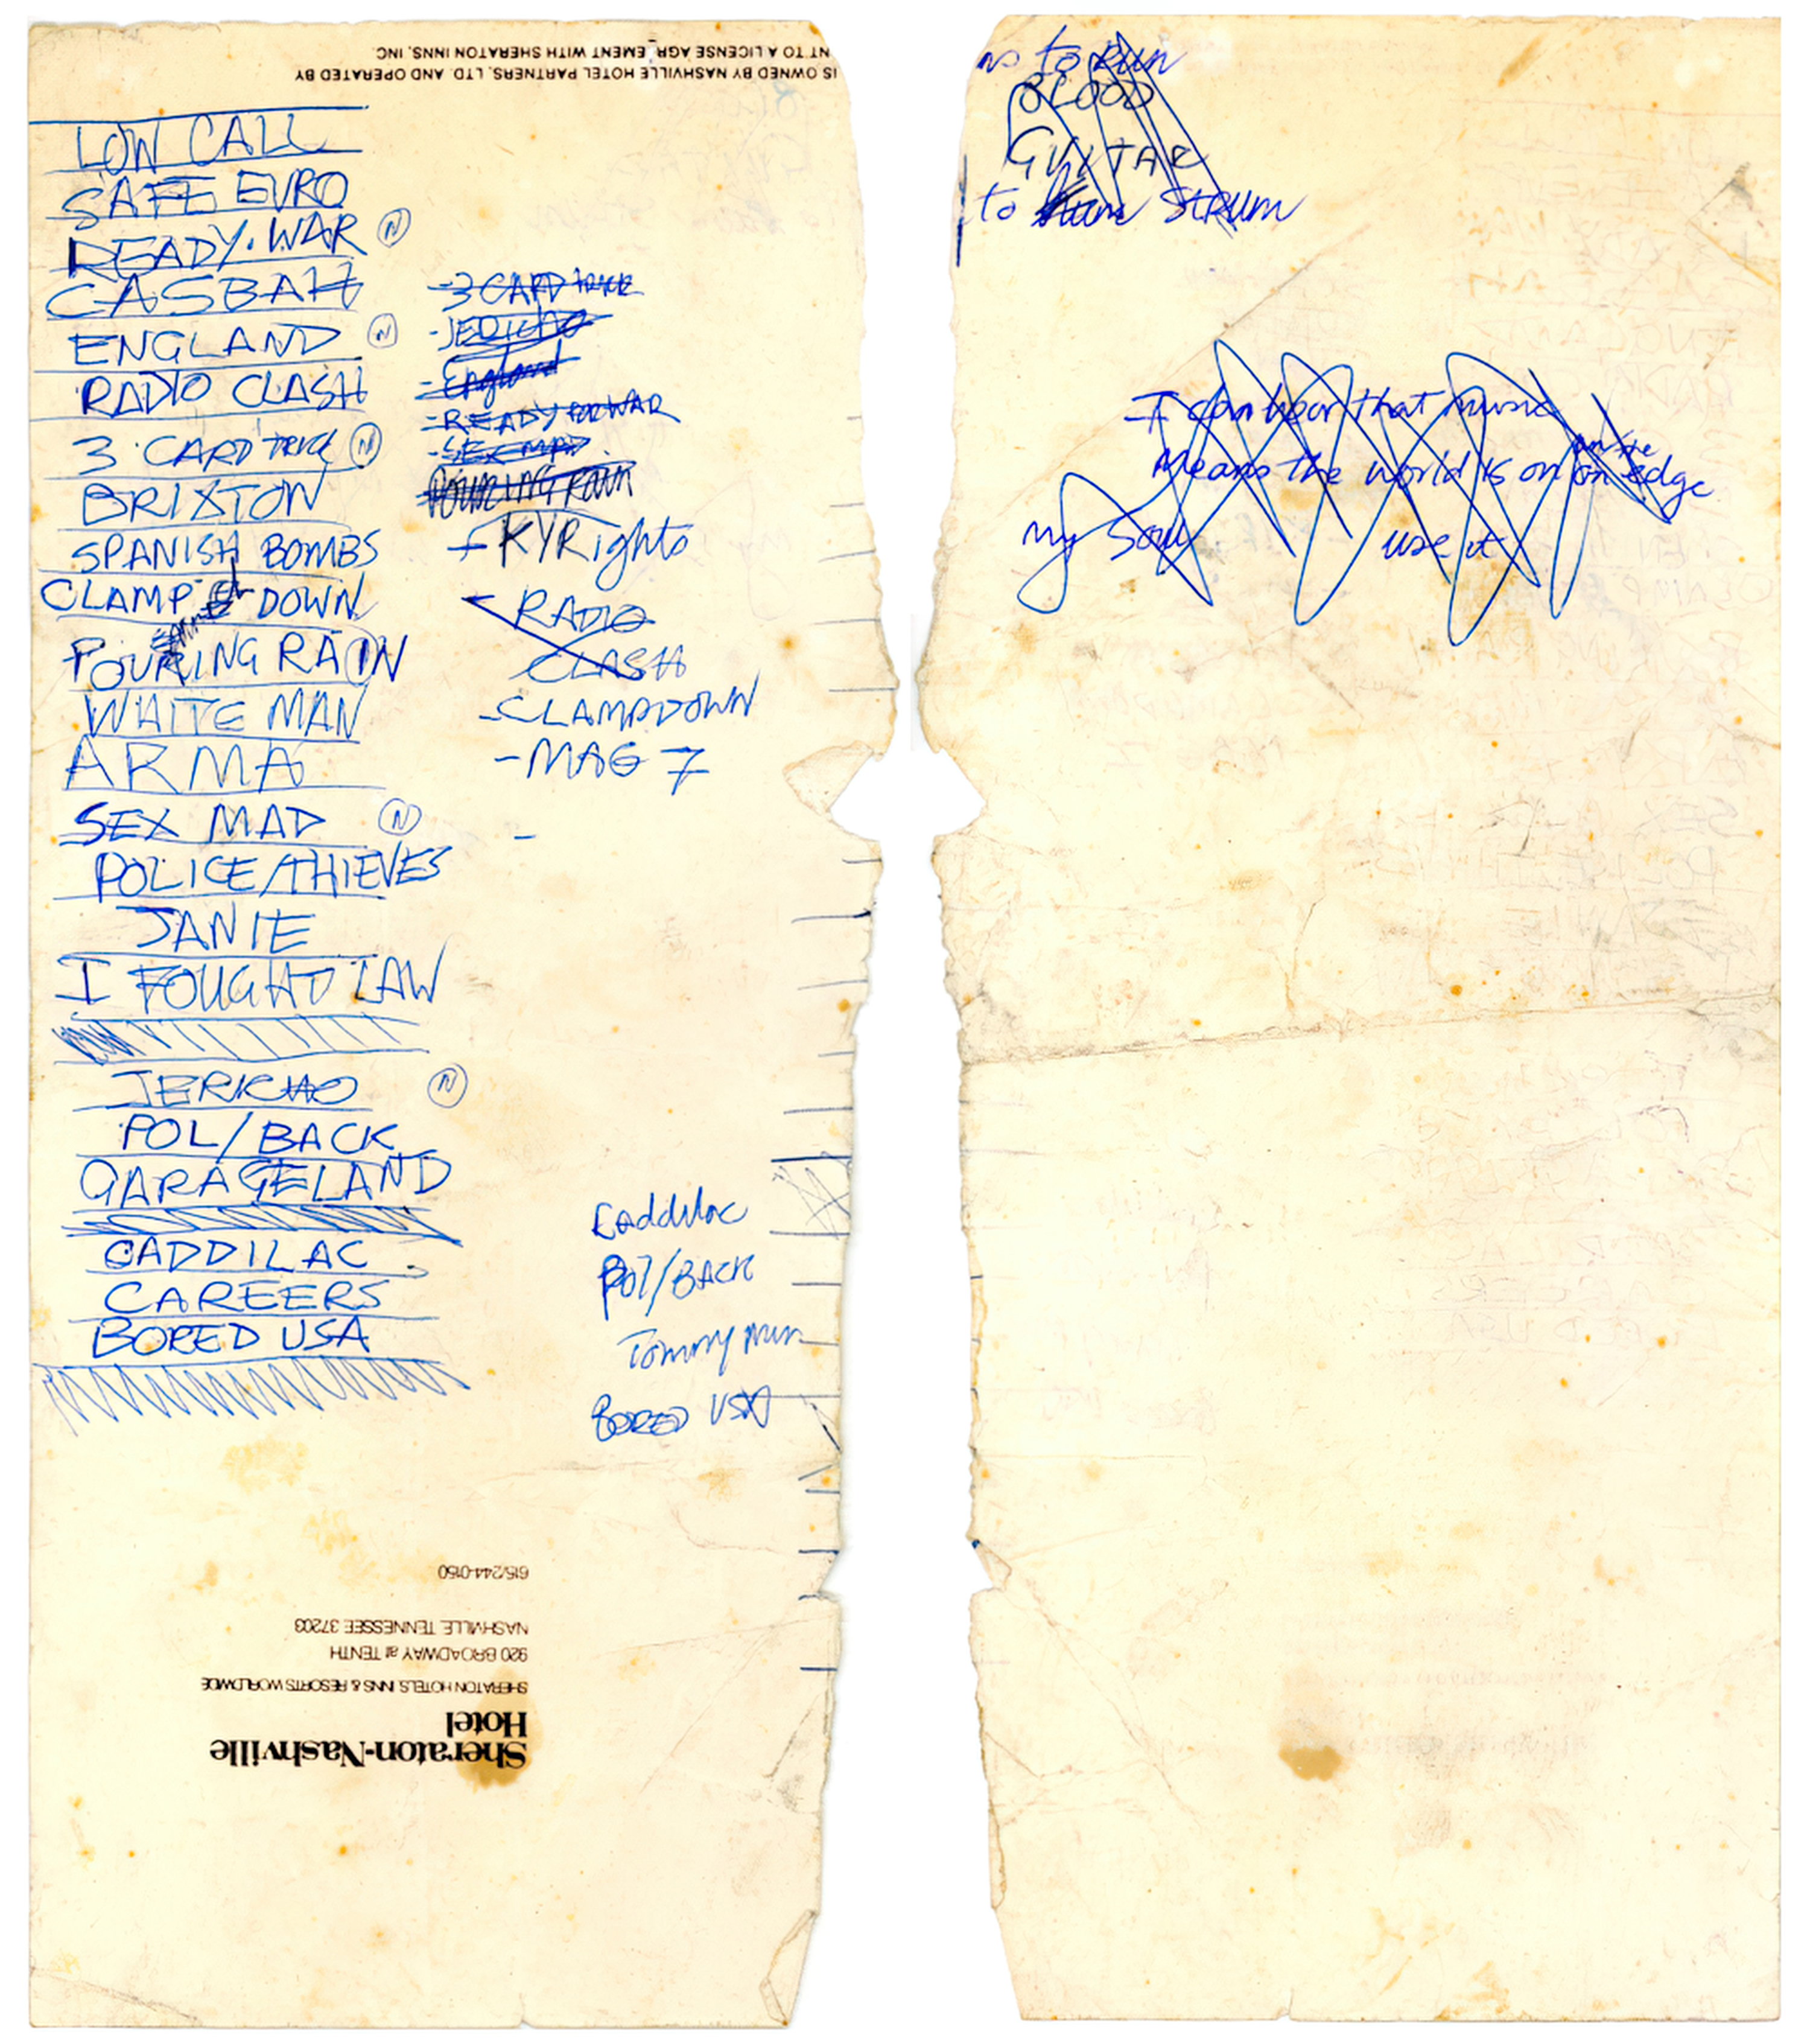 NT TO A LICENSE AGR EMENT WITH SHERATON INNS, INC.
IS OWNED BY NASHVILLE HOTEL PARTNERS, LTD. AND OPERATED BY
LOW CALL
SAFE EURO
READY. WAR N
CASBAH
ENGLAND N
RADIO CLASH
3 CARD TRICK N
BRIXTON
SPANISH BOMBS
CLAMP DOWN
POURING RAIN
WHITE MAN
ARMA
SEX MAD N
POLICE/THIEVES
JANIE
I FOUGHT LAW
JERICHO N
POL/BACK
GARAGELAND
CADDILAC
CAREERS
BORED USA
-3 CARD TRICK
-JERICHO
-England
-READY FOR WAR
-SEX MAD
POURING RAIN
-KYRights
-RADIO
CLASH
-CLAMPDOWN
-MAG 7
-
Caddilac
POL/BACK
Tommy mun
BORED USA
615/244-0150
NASHVILLE TENNESSEE 37203
920 BROADWAY at TENTH
SHERATON HOTELS, INNS & RESORTS WORLDWIDE
Hotel
Sheraton-Nashville
ns to Run
BLOOD
GUITAR
to STRUM
I can hear that music
on the
Means the world is on an edge
my Soul use it